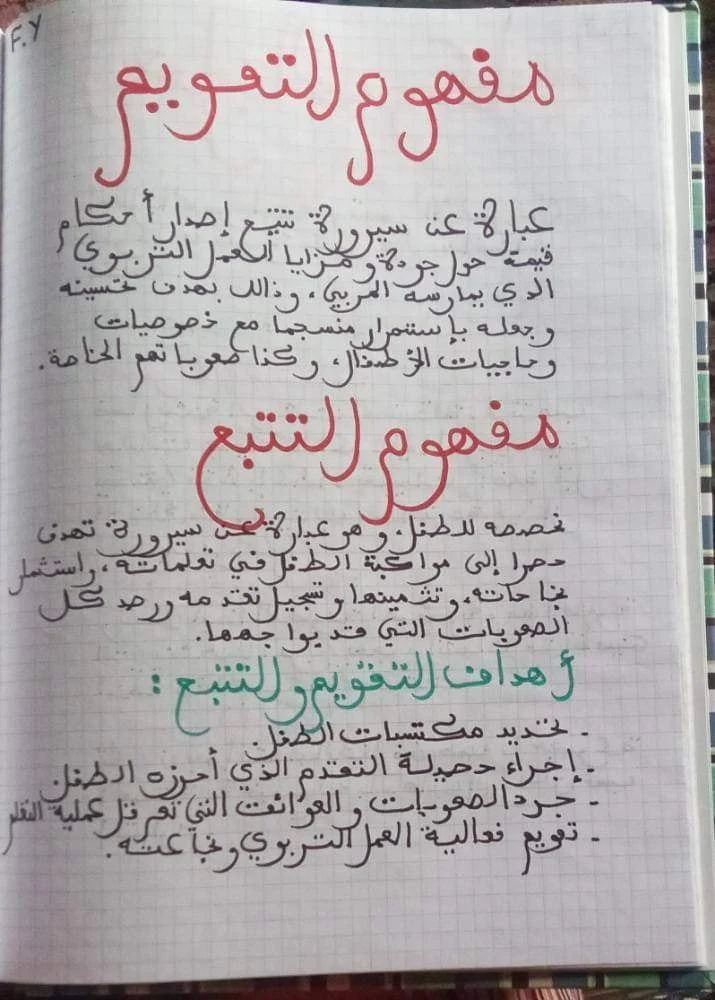 F.Y
مفهوم التقويم
عبارة عن سيرورة تتبع إصدار أحكام
قيمة حول جودة ومزايا العمل التربوي
الدي يمارسه المربي، وذالك بهدف تحسينه
وجعله بإستمرار منسجما مع خصوصيات
وحاجيات الأطفال، وكذا صعوباتهم الخاصة.
مفهوم التتبع
نخصصه للطفل، وهو عبارة عن سيرورة تهدف
حصرا إلى مواكبة الطفل في تعلماته، واستثمار
نجاحاته، وتثمينها وتسجيل تقدمه ورصد كل
الصعوبات التي قد يواجهها.
أهداف التقويم والتتبع :
- تحديد مكتسبات الطفل.
- إجراء حصيلة التقدم الذي أحرزه الطفل.
- جرد الصعوبات والعوائق التي تعرقل عملية التعلم
- تقويم فعالية العمل التربوي ونجاعته.